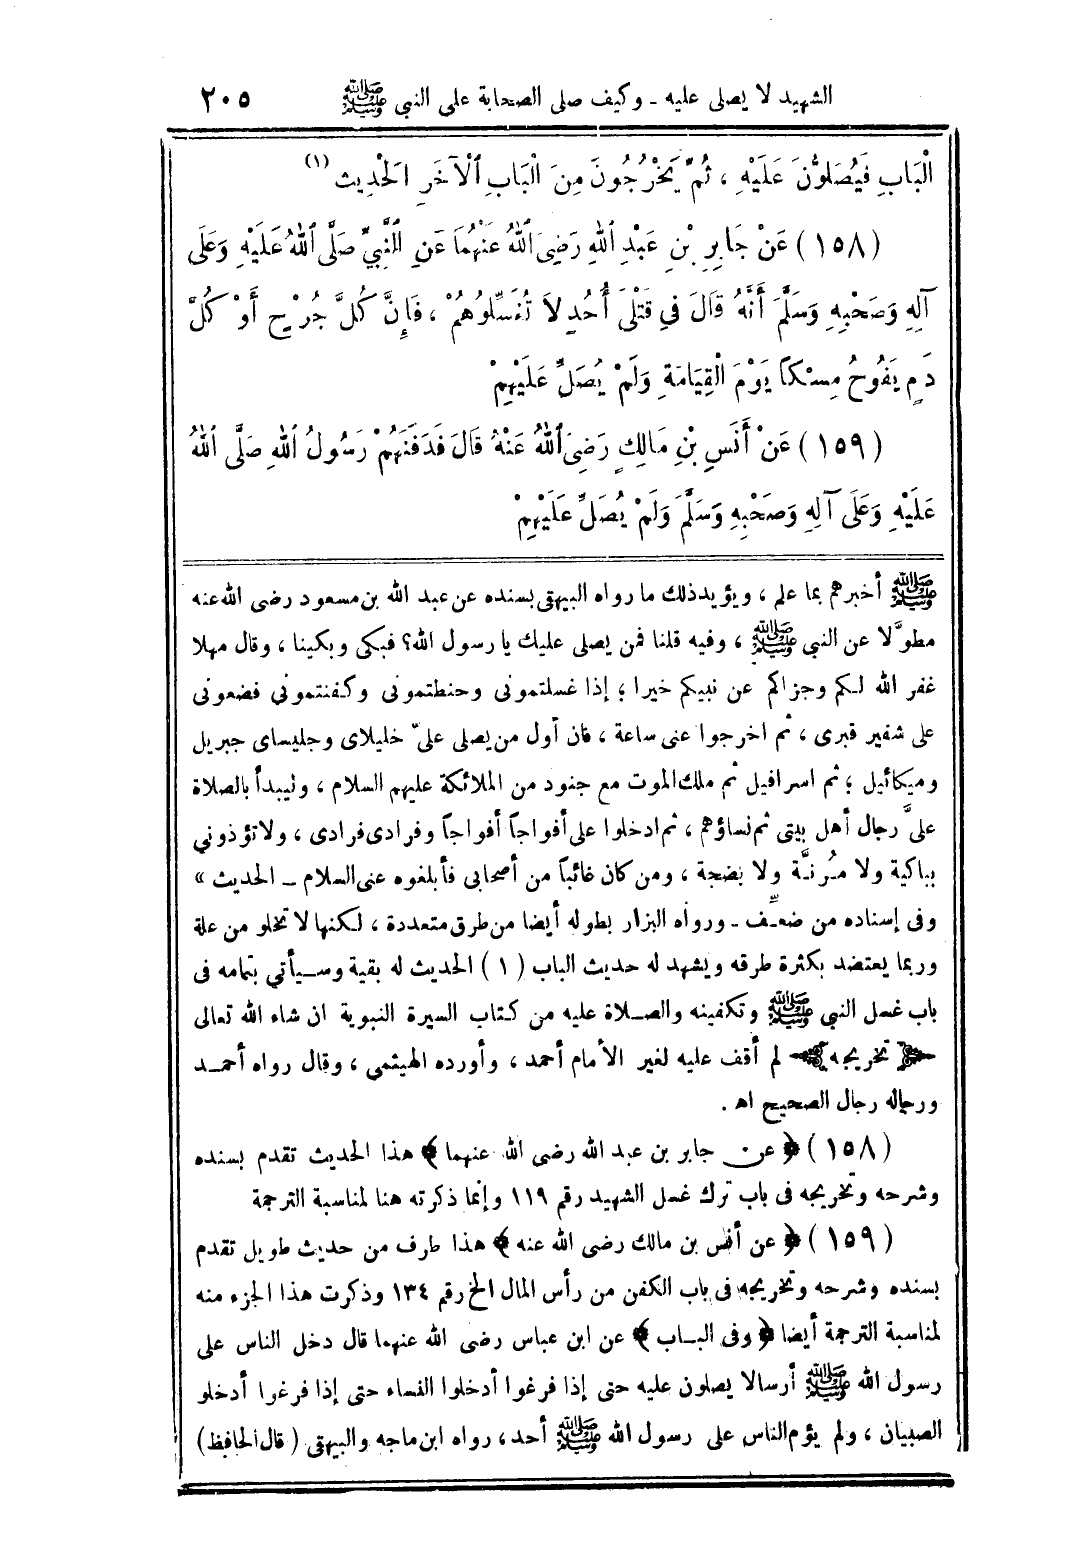 الشهيد لا يصلى عليه ـ وكيف صلى الصحابة على النبى ﷺ ٢٠٥
الْبَابِ فَيُصَلُّونَ عَلَيْهِ ، ثُمَّ يَخْرُجُونَ مِنَ الْبَابِ الْآخَرِ الْحَدِيث (١)
(١٥٨) عَنْ جَابِرِ بْنِ عَبْدِ اللهِ رَضِيَ اللهُ عَنْهُمَا عَنِ النَّبِيِّ صَلَّى اللهُ عَلَيْهِ وَعَلَى
آلِهِ وَصَحْبِهِ وَسَلَّمَ أَنَّهُ قَالَ فِي قَتْلَى أُحُدٍ لاَ تُغَسِّلُوهُمْ ، فَإِنَّ كُلَّ جُرْحٍ أَوْ كُلَّ
دَمٍ يَفُوحُ مِسْكًا يَوْمَ الْقِيَامَةِ وَلَمْ يُصَلِّ عَلَيْهِمْ
(١٥٩) عَنْ أَنَسِ بْنِ مَالِكٍ رَضِيَ اللهُ عَنْهُ قَالَ فَدَفَنَهُمْ رَسُولُ اللهِ صَلَّى اللهُ
عَلَيْهِ وَعَلَى آلِهِ وَصَحْبِهِ وَسَلَّمَ وَلَمْ يُصَلِّ عَلَيْهِمْ
ﷺ أخبرهم بما علم ، ويؤيد ذلك ما رواه البيهقى بسنده عن عبد الله بن مسعود رضى الله عنه
مطوَّلا عن النبى ﷺ ، وفيه قلنا فمن يصلى عليك يا رسول الله؟ فبكى وبكينا ، وقال مهلا
غفر الله لكم وجزاكم عن نبيكم خيرا ؛ إذا غسلتمونى وحنطتمونى وكفنتمونى فضعونى
على شفير قبرى ، ثم اخرجوا عنى ساعة ، فان أول من يصلى علىّ خليلاى وجليساى جبريل
وميكائيل ؛ ثم اسرافيل ثم ملك الموت مع جنود من الملائكة عليهم السلام ، وليبدأ بالصلاة
علىَّ رجال أهل بيتى ثم نساؤهم ، ثم ادخلوا على أفواجاً أفواجاً وفرادى فرادى ، ولا تؤذوني
بباكية ولا مُرنَّة ولا بضجة ، ومن كان غائباً من أصحابى فأبلغوه عنى السلام ـ الحديث »
وفى إسناده من ضعِّف ـ ورواه البزار بطوله أيضا من طرق متعددة ، لكنها لا تخلو من علة
وربما يعتضد بكثرة طرقه ويشهد له حديث الباب (١) الحديث له بقية وسيأتي بتمامه فى
باب غسل النبى ﷺ وتكفينه والصلاة عليه من كتاب السيرة النبوية ان شاء الله تعالى
﴿ تخريجه ﴾ لم أقف عليه لغير الأمام أحمد ، وأورده الهيثمى ، وقال رواه أحمد
ورجاله رجال الصحيح اهـ .
(١٥٨) ﴿ عن جابر بن عبد الله رضى الله عنهما ﴾ هذا الحديث تقدم بسنده
وشرحه وتخريجه فى باب ترك غسل الشهيد رقم ١١٩ وإنما ذكرته هنا لمناسبة الترجمة
(١٥٩) ﴿ عن أنس بن مالك رضى الله عنه ﴾ هذا طرف من حديث طويل تقدم
بسنده وشرحه وتخريجه فى باب الكفن من رأس المال الخ رقم ١٣٤ وذكرت هذا الجزء منه
لمناسبة الترجمة أيضا ﴿ وفى الباب ﴾ عن ابن عباس رضى الله عنهما قال دخل الناس على
رسول الله ﷺ أرسالا يصلون عليه حتى إذا فرغوا أدخلوا النساء حتى إذا فرغوا أدخلو
الصبيان ، ولم يؤم الناس على رسول الله ﷺ أحد ، رواه ابن ماجه والبيهقى (قال الحافظ)